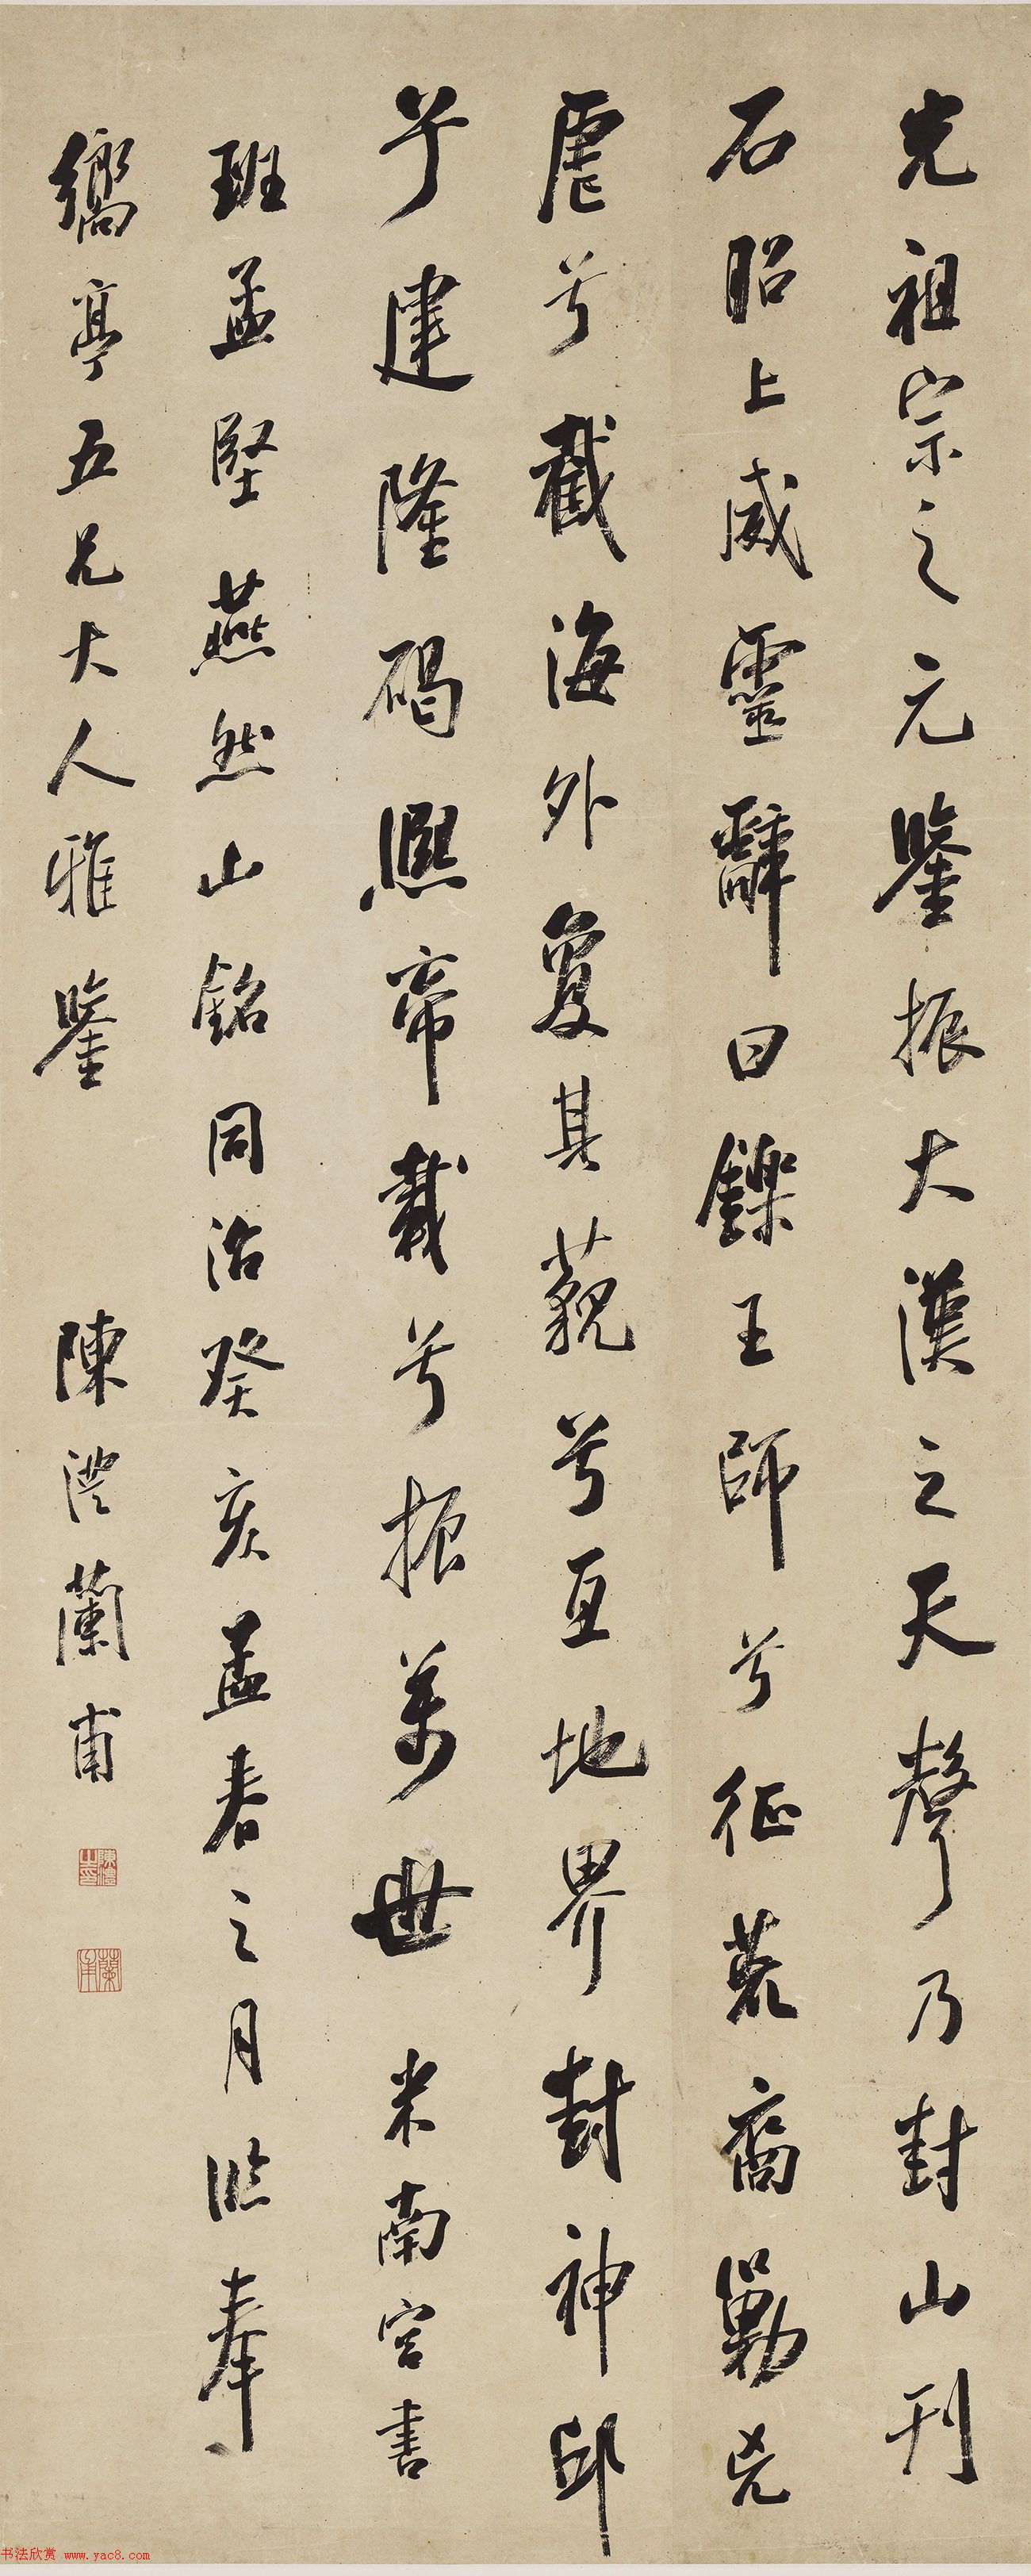 光祖宗之元鑒振大漢之天聲乃封山刊
石昭上威靈辭曰鑠王師兮征荒裔勦兇
虐兮截海外夐其藐兮亙地界封神邱
兮建隆碣熙帝載兮振萬世 米南宮書
班孟堅燕然山銘同治癸亥孟春之月臨奉
亭五兄大人雅鑒
陳澧蘭甫
陳澧之印
蘭甫
书法欣赏 www.yac8.com